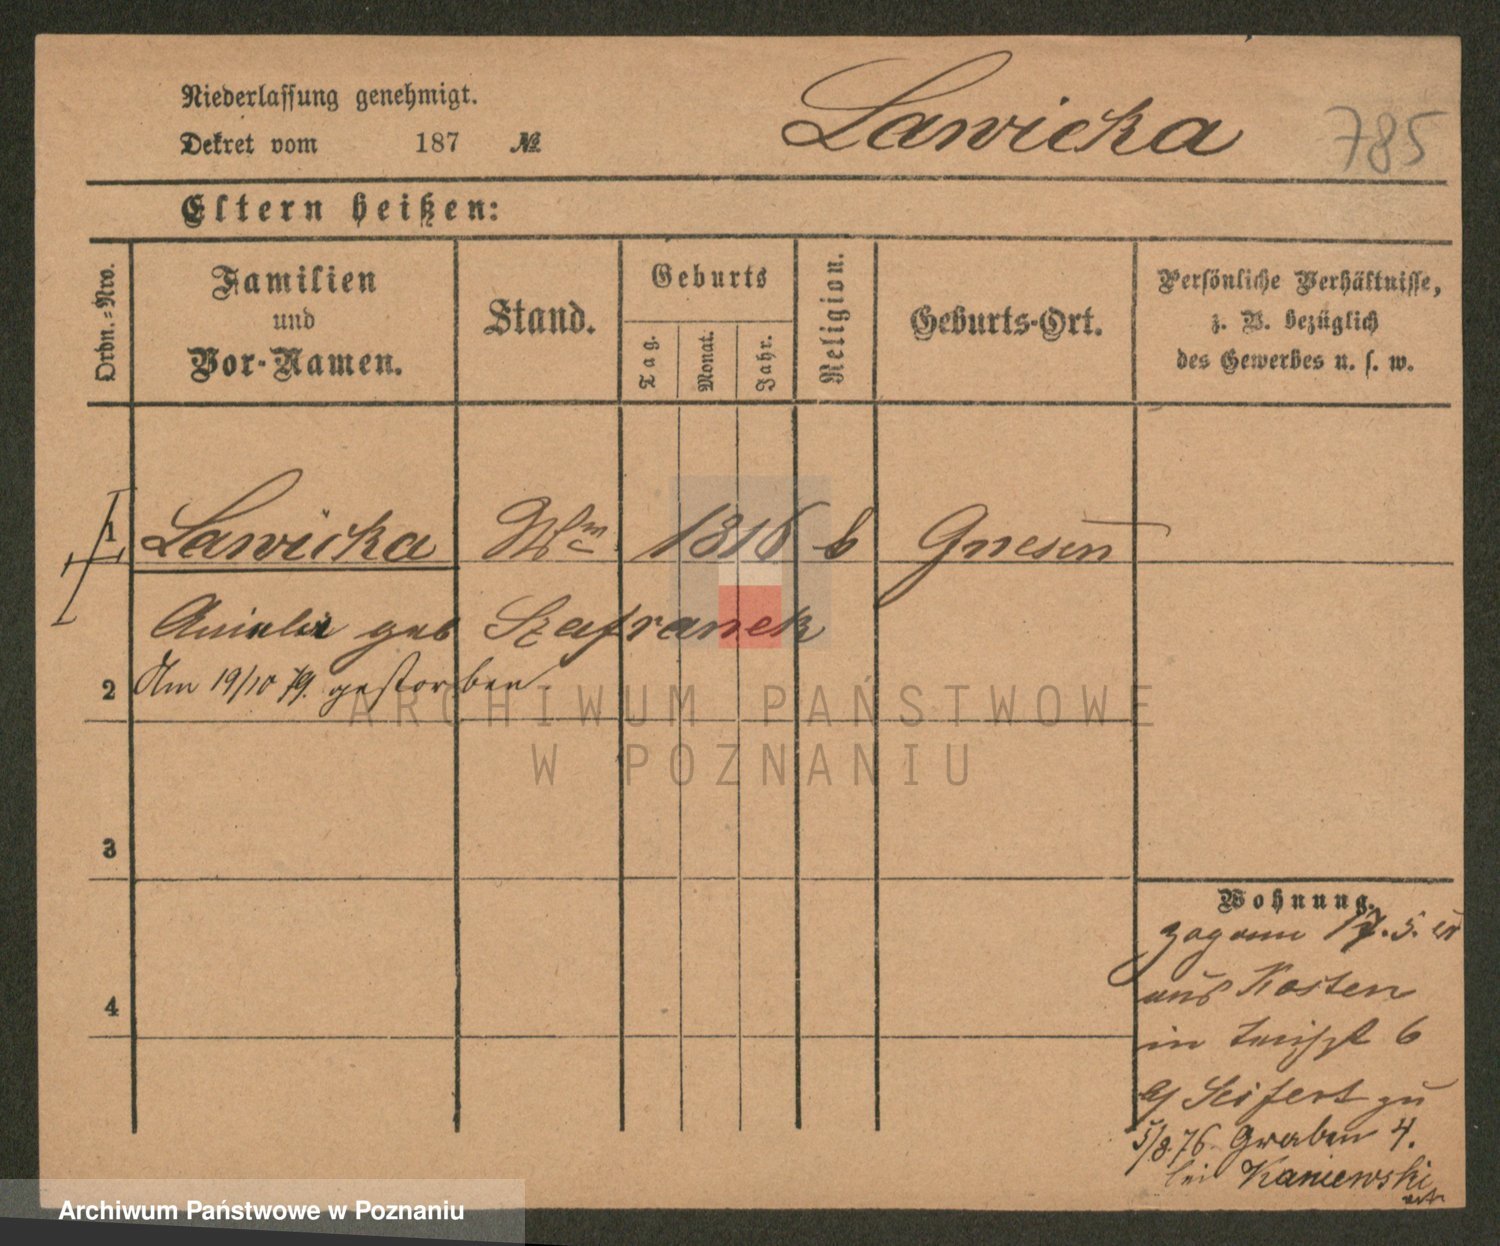 Niederlassung genehmigt.
Dekret vom 187 №
Lawicka
785
Eltern heißen:
Ordn.-Nro.
Familien
und
Vor-Namen.
Stand.
Geburts
Tag.
Monat.
Jahr.
Religion.
Geburts-Ort.
Persönliche Verhältnisse,
z. B. bezüglich
des Gewerbes u. s. w.
1
Lawicka
1816
Gnesen
geb Szafranek
2
Am 19/10 79. gestorben
3
4
Wohnung.
17.5.
aus Kosten
in 6
Seifert zu
5/8.76 Graben 4.
bei Kaniewski
ARCHIWUM PAŃSTWOWE
W POZNANIU
Archiwum Państwowe w Poznaniu